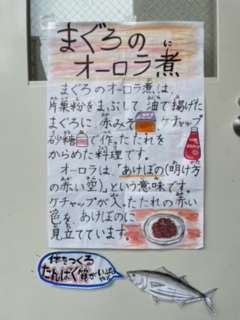 まぐろの
オーロラ煮
に
まぐろのオーロラ煮は、
片栗粉をまぶして油で揚げた
まぐろに赤みそ ケチャップ
砂糖 で作ったたれを
からめた料理です。
オーロラは、「あけぼの(明け方
の赤い空)」という意味です。
ケチャップが入ったたれの赤い
色を、あけぼのに
見立てています。
体をつくる
たんぱく質が